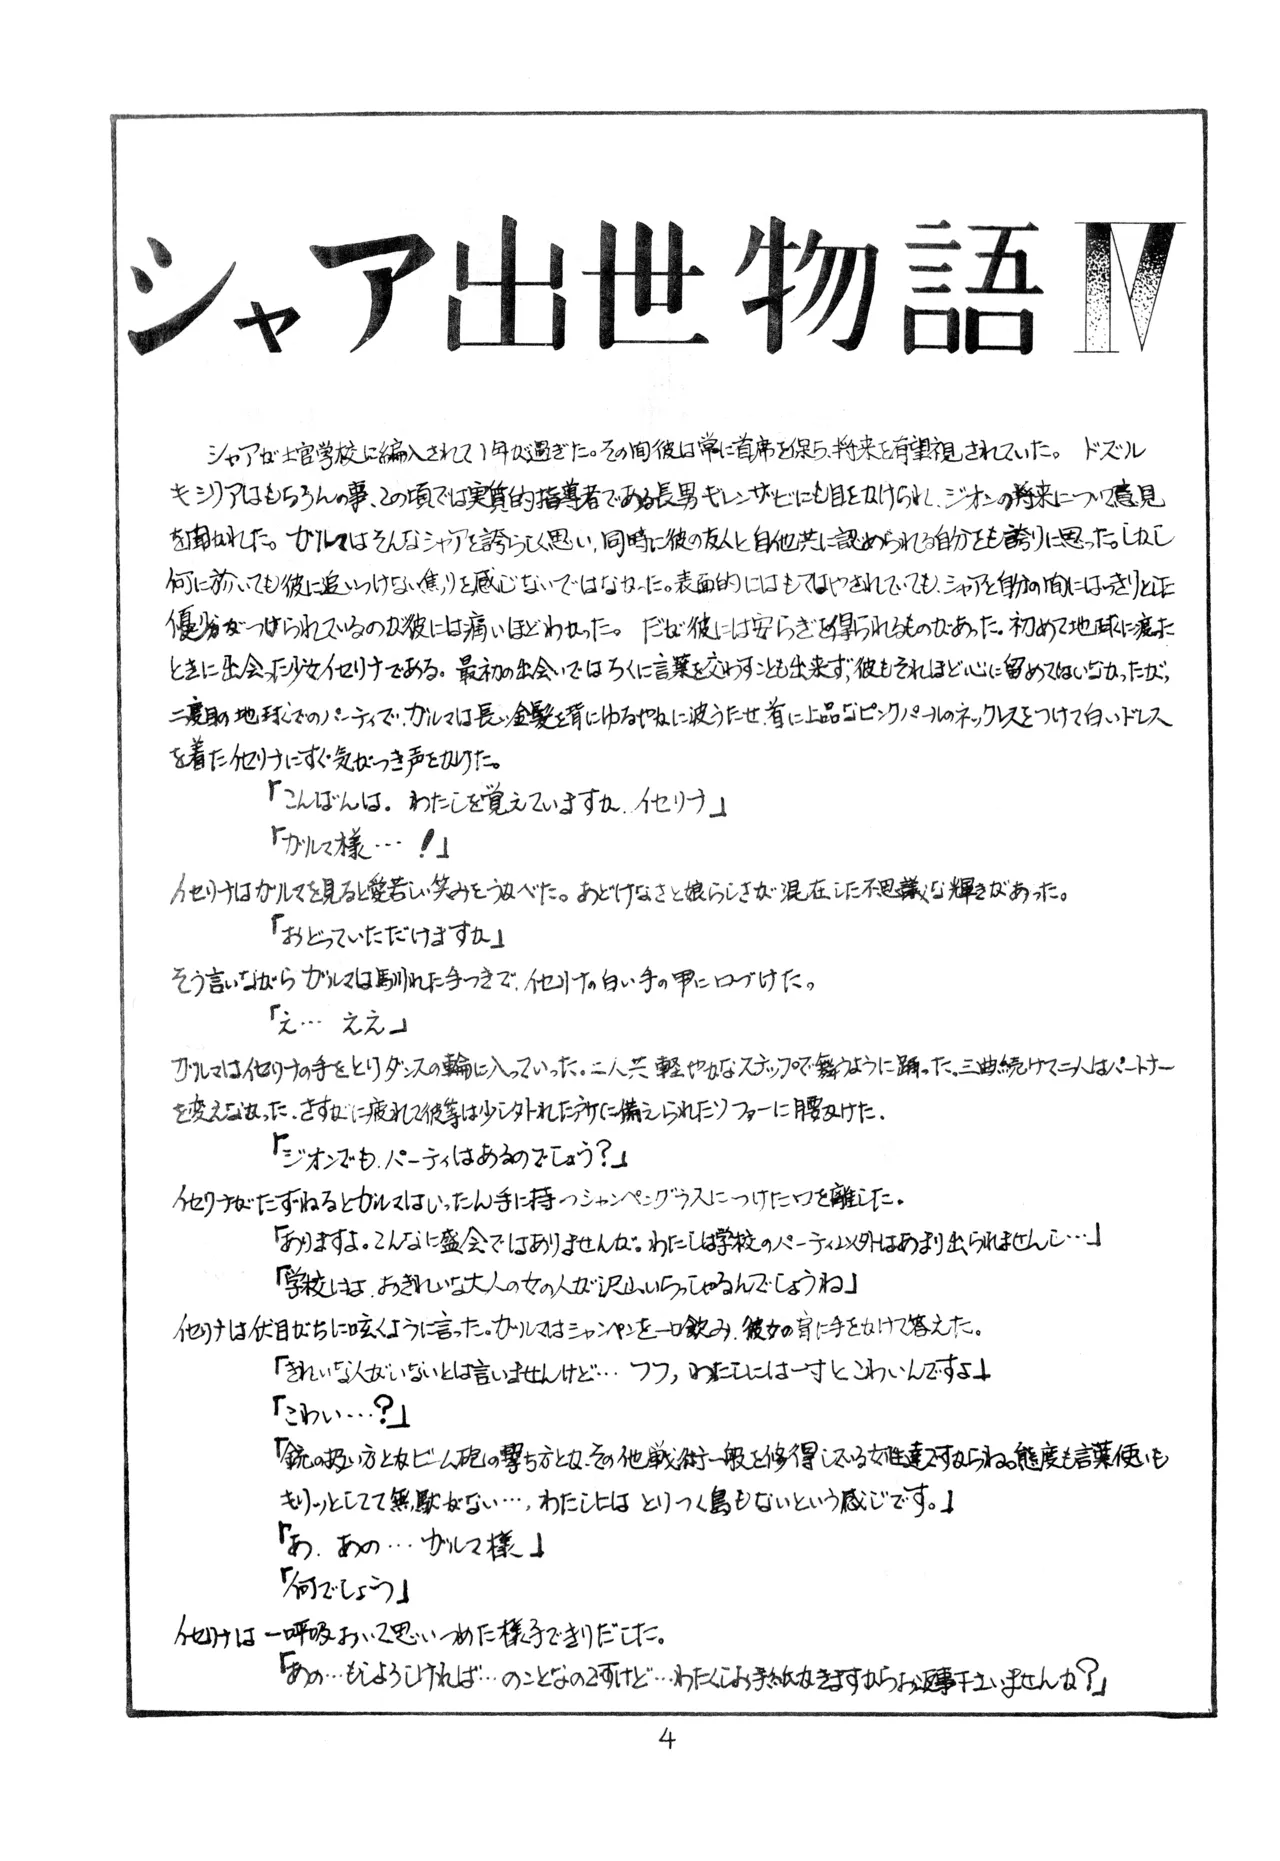 シャア出世物語Ⅳ
シャアが士官学校に編入されて1年が過ぎた。その間彼は常に首席を保ち、将来を有望視されていた。 ドズル
キシリアはもちろんの事、この頃では実質的指導者である長男ギレンザビにも目をかけられ、ジオンの将来について意見
を聞かれた。ガルマはそんなシャアを誇らしく思い、同時に彼の友人と自他共に認められる自分をも誇りに思った。しかし
何に於いても彼に追いつけない焦りを感じないではなかった。表面的にはもてはやされていても、シャアと自分の間にはっきりと
優劣がつけられているのが彼には痛いほどわかった。 だが彼には安らぎを得られるものがあった。初めて地球に
ときに出会った少女イセリナである。最初の出会いではろくに言葉を交わすことも出来ず、彼もそれほど心に留めてはいなかったが、
二度目の地球でのパーティで、ガルマは長い金髪を背にゆるやかに波うたせ、首に上品なピンクパールのネックレスをつけて白いドレス
を着たイセリナにすぐ気がつき声をかけた。
「こんばんは。わたしを覚えていますか、イセリナ」
「ガルマ様…！」
イセリナはガルマを見ると愛若しい笑みをうかべた。あどけなさと娘らしさが混在した不思議な輝きがあった。
「おどっていただけますか」
そう言いながらガルマは馴れた手つきで、イセリナの白い手の甲に口づけた。
「え… ええ」
ガルマはイセリナの手をとりダンスの輪に入っていった。二人共軽やかなステップで舞うように踊った。三曲続けて二人はパートナー
を変えなかった。さすがに疲れて彼等は少しはずれた所に備えられたソファーに腰かけた。
「ジオンでも、パーティはあるのでしょう?」
イセリナがたずねるとガルマはいったん手に持つシャンペングラスにつけた口を離した。
「ありますよ。こんなに盛会ではありませんが。わたしは学校のパーティ以外はあまり出られませんし…」
「学校には、おきれいな大人の女の人が沢山いらっしゃるんでしょうね」
イセリナは伏目がちに呟くように言った。ガルマはシャンペンを一口飲み、彼女の肩に手をかけて答えた。
「きれいな人がいないとは言いませんけど… フフ、わたしには一寸とこわいんですよ」
「こわい…?」
「銃の扱い方とかビーム砲の撃ち方とか、その他戦術一般を修得している女性達ですからね。態度も言葉使いも
きりっとしてて無駄がない…、わたしには とりつく島もないという感じです。」
「あ、あの… ガルマ様」
「何でしょう」
イセリナは一呼吸おいて思いつめた様子できりだした。
「あの…もしよろしければ…のことなのですけど…わたくしお手紙かきますからお返事下さいませんか?」
4